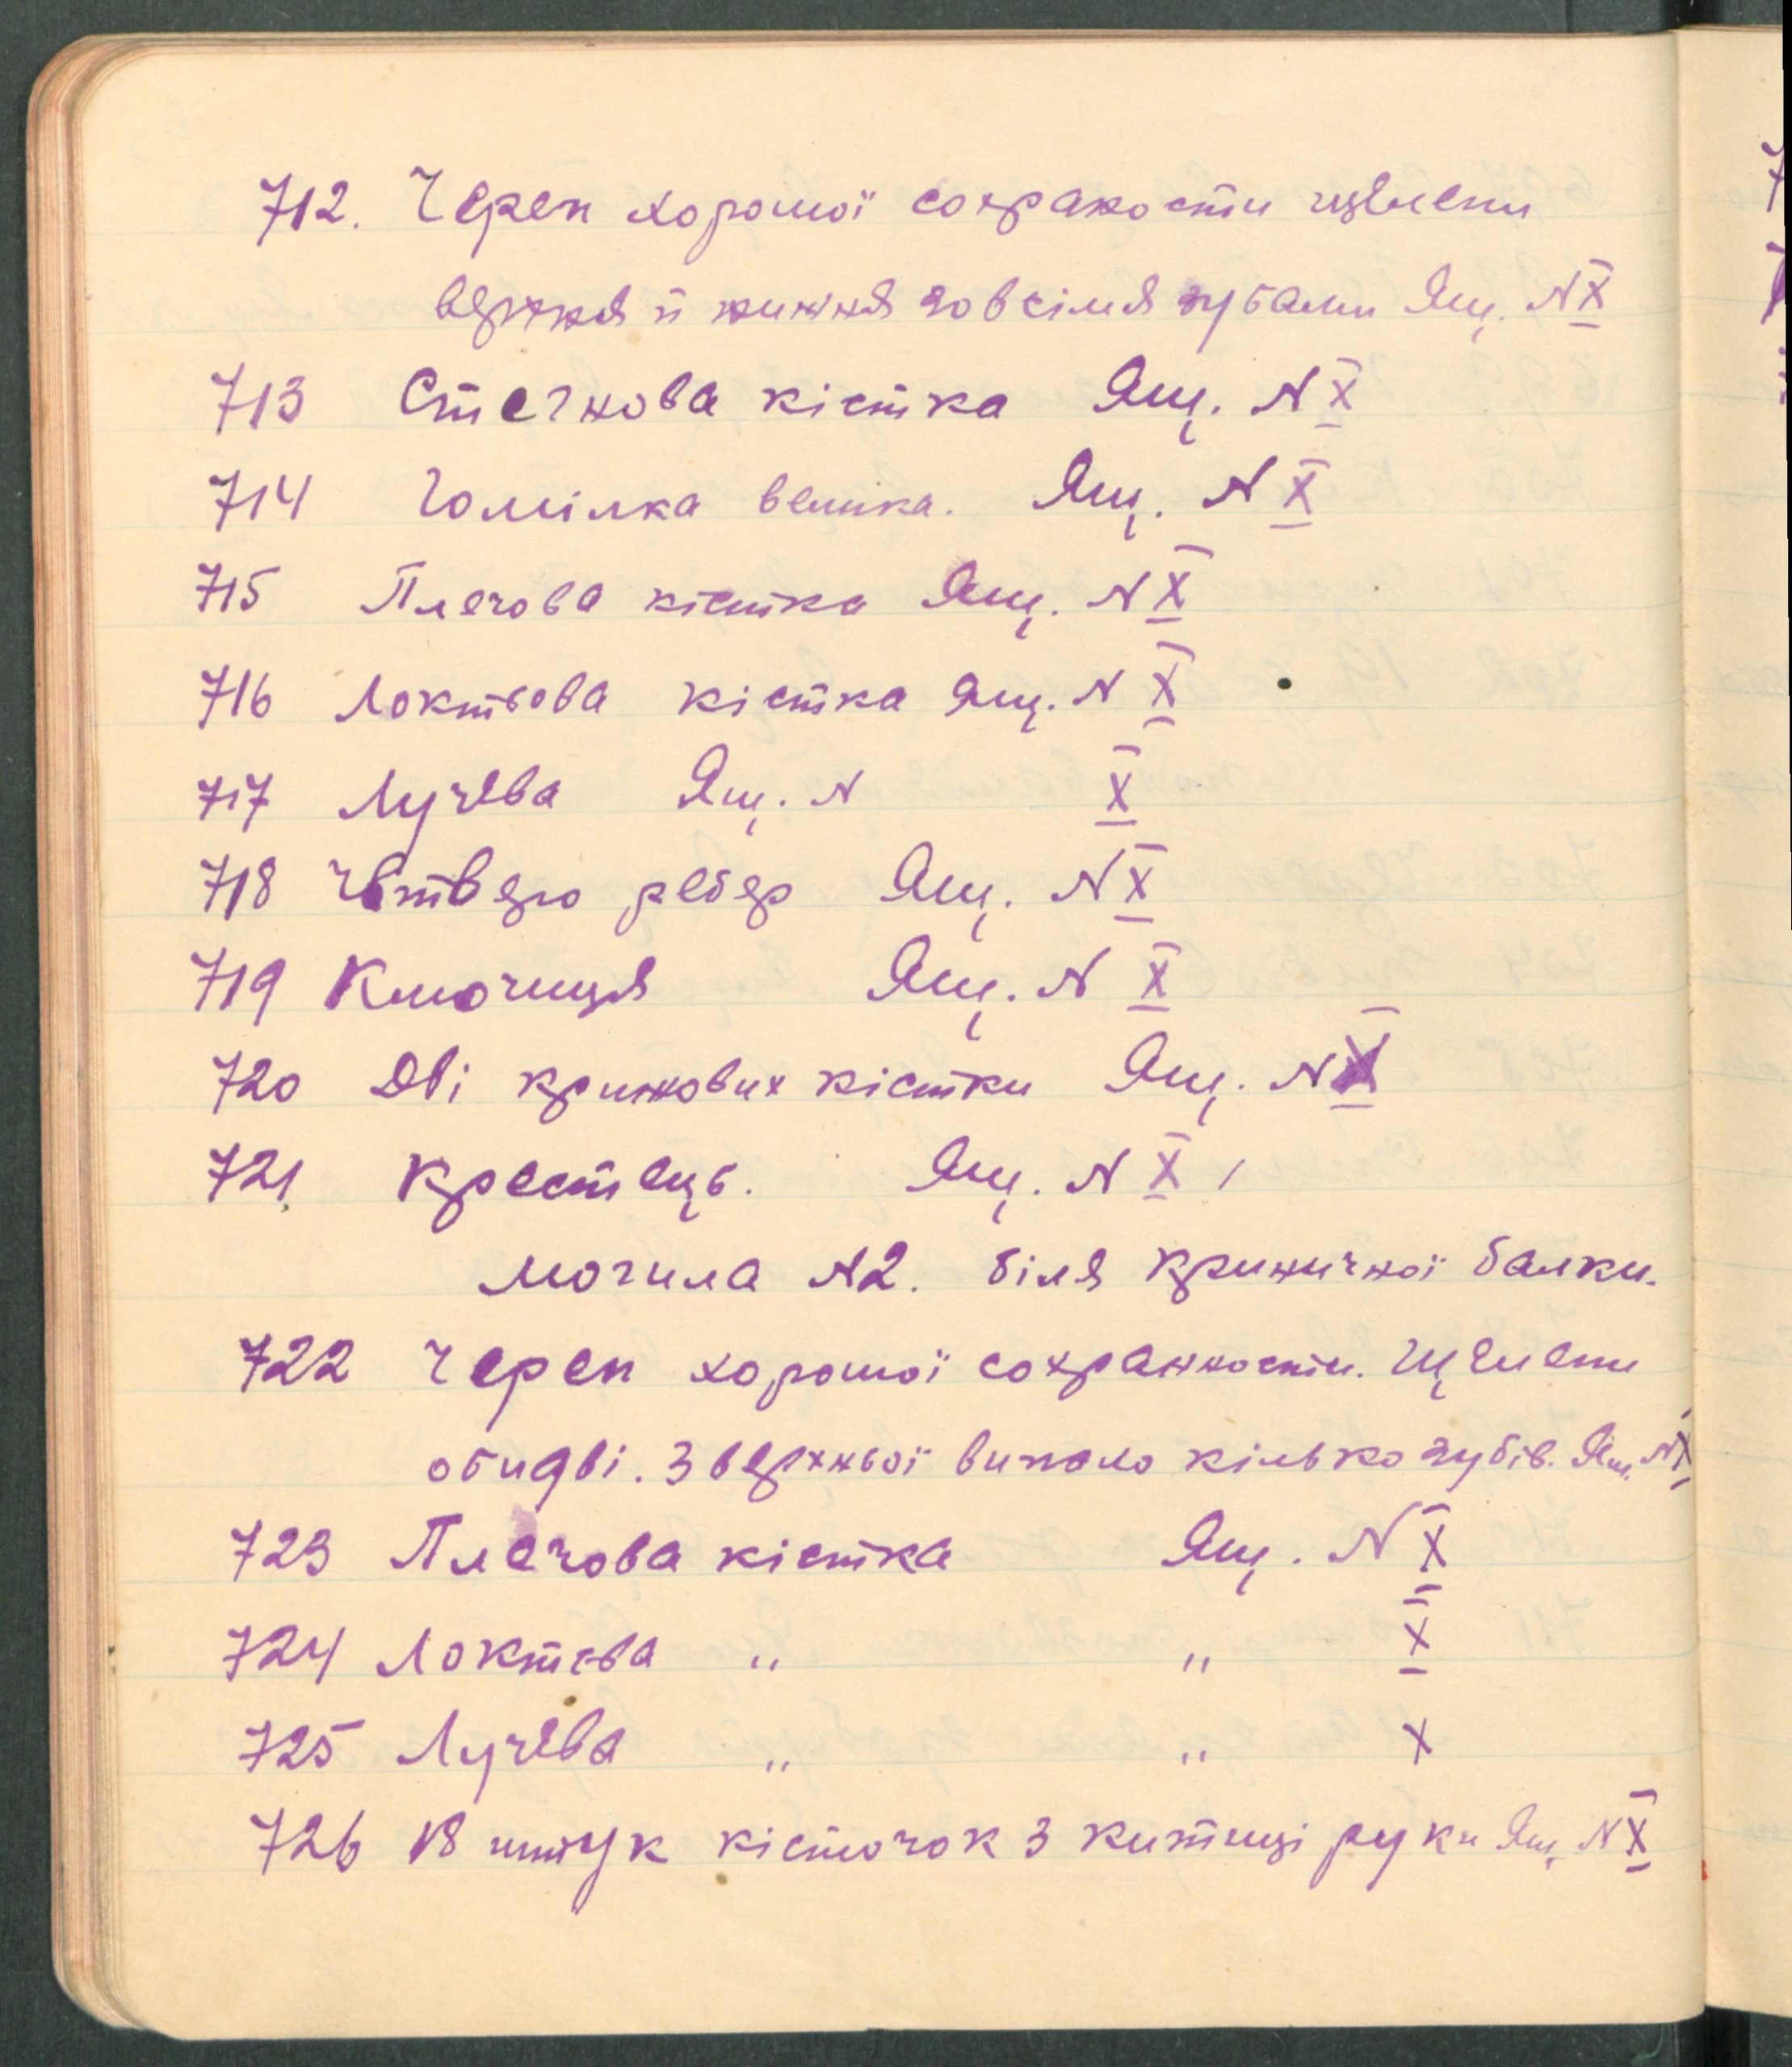 712. Череп хорошої сохраности щелепи
верхня й нижня зовсіма зубами Ящ. N X
713 Стегнова кістка Ящ. N X
714 Гомілка велика. Ящ. N X
715 Плечова кістка Ящ. N X
716 Локтьова кістка Ящ. N X
717 Лучева Ящ. N X
718 Четверо ребер Ящ. N X
719 Ключиця Ящ. N X
720 Дві крижових кістки Ящ. N X
721 Крестець. Ящ. N X
Могила N2. біля Криничної балки.
722 Череп хорошої сохранности. Щелепи
обидві. З верхньої випало кілько зубів. Ящ. N X
723 Плечова кістка Ящ. N X
724 Локтева " " X
725 Лучева " " X
726 18 штук кісточок з китиці руки Ящ. N X